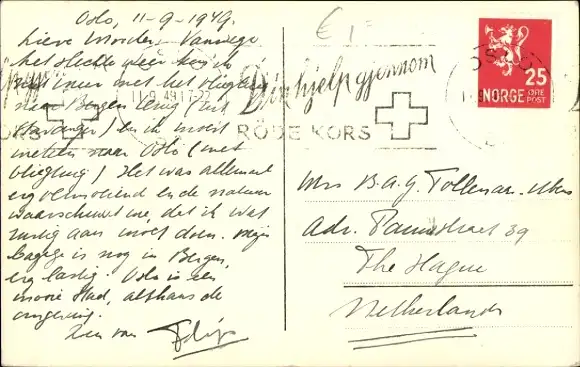 Oslo, 11-9-1949.
Lieve Moeder. Vanwege
het slechte weer kon ik
niet meer met het vliegtuig
naar Bergen terug (uit
Stavanger) en ik moest
meteen naar Oslo (met
vliegtuig). Het was allemaal
erg vermoeiend en de natuur
waarschuwt me, dat ik wat
rustig aan moet doen. Mijn
bagage is nog in Bergen,
erg lastig. Oslo is een
mooie stad, althans de
omgeving.
Zoen van Flip
€ 1,-
OSLO
11-9 49 17-22
Din hjelp gjennom
RÖDE KORS
25
NORGE ØRE POST
KORS
Mrs B.A.G. Tollenaar-
Adr. 39
The Hague
Netherlands